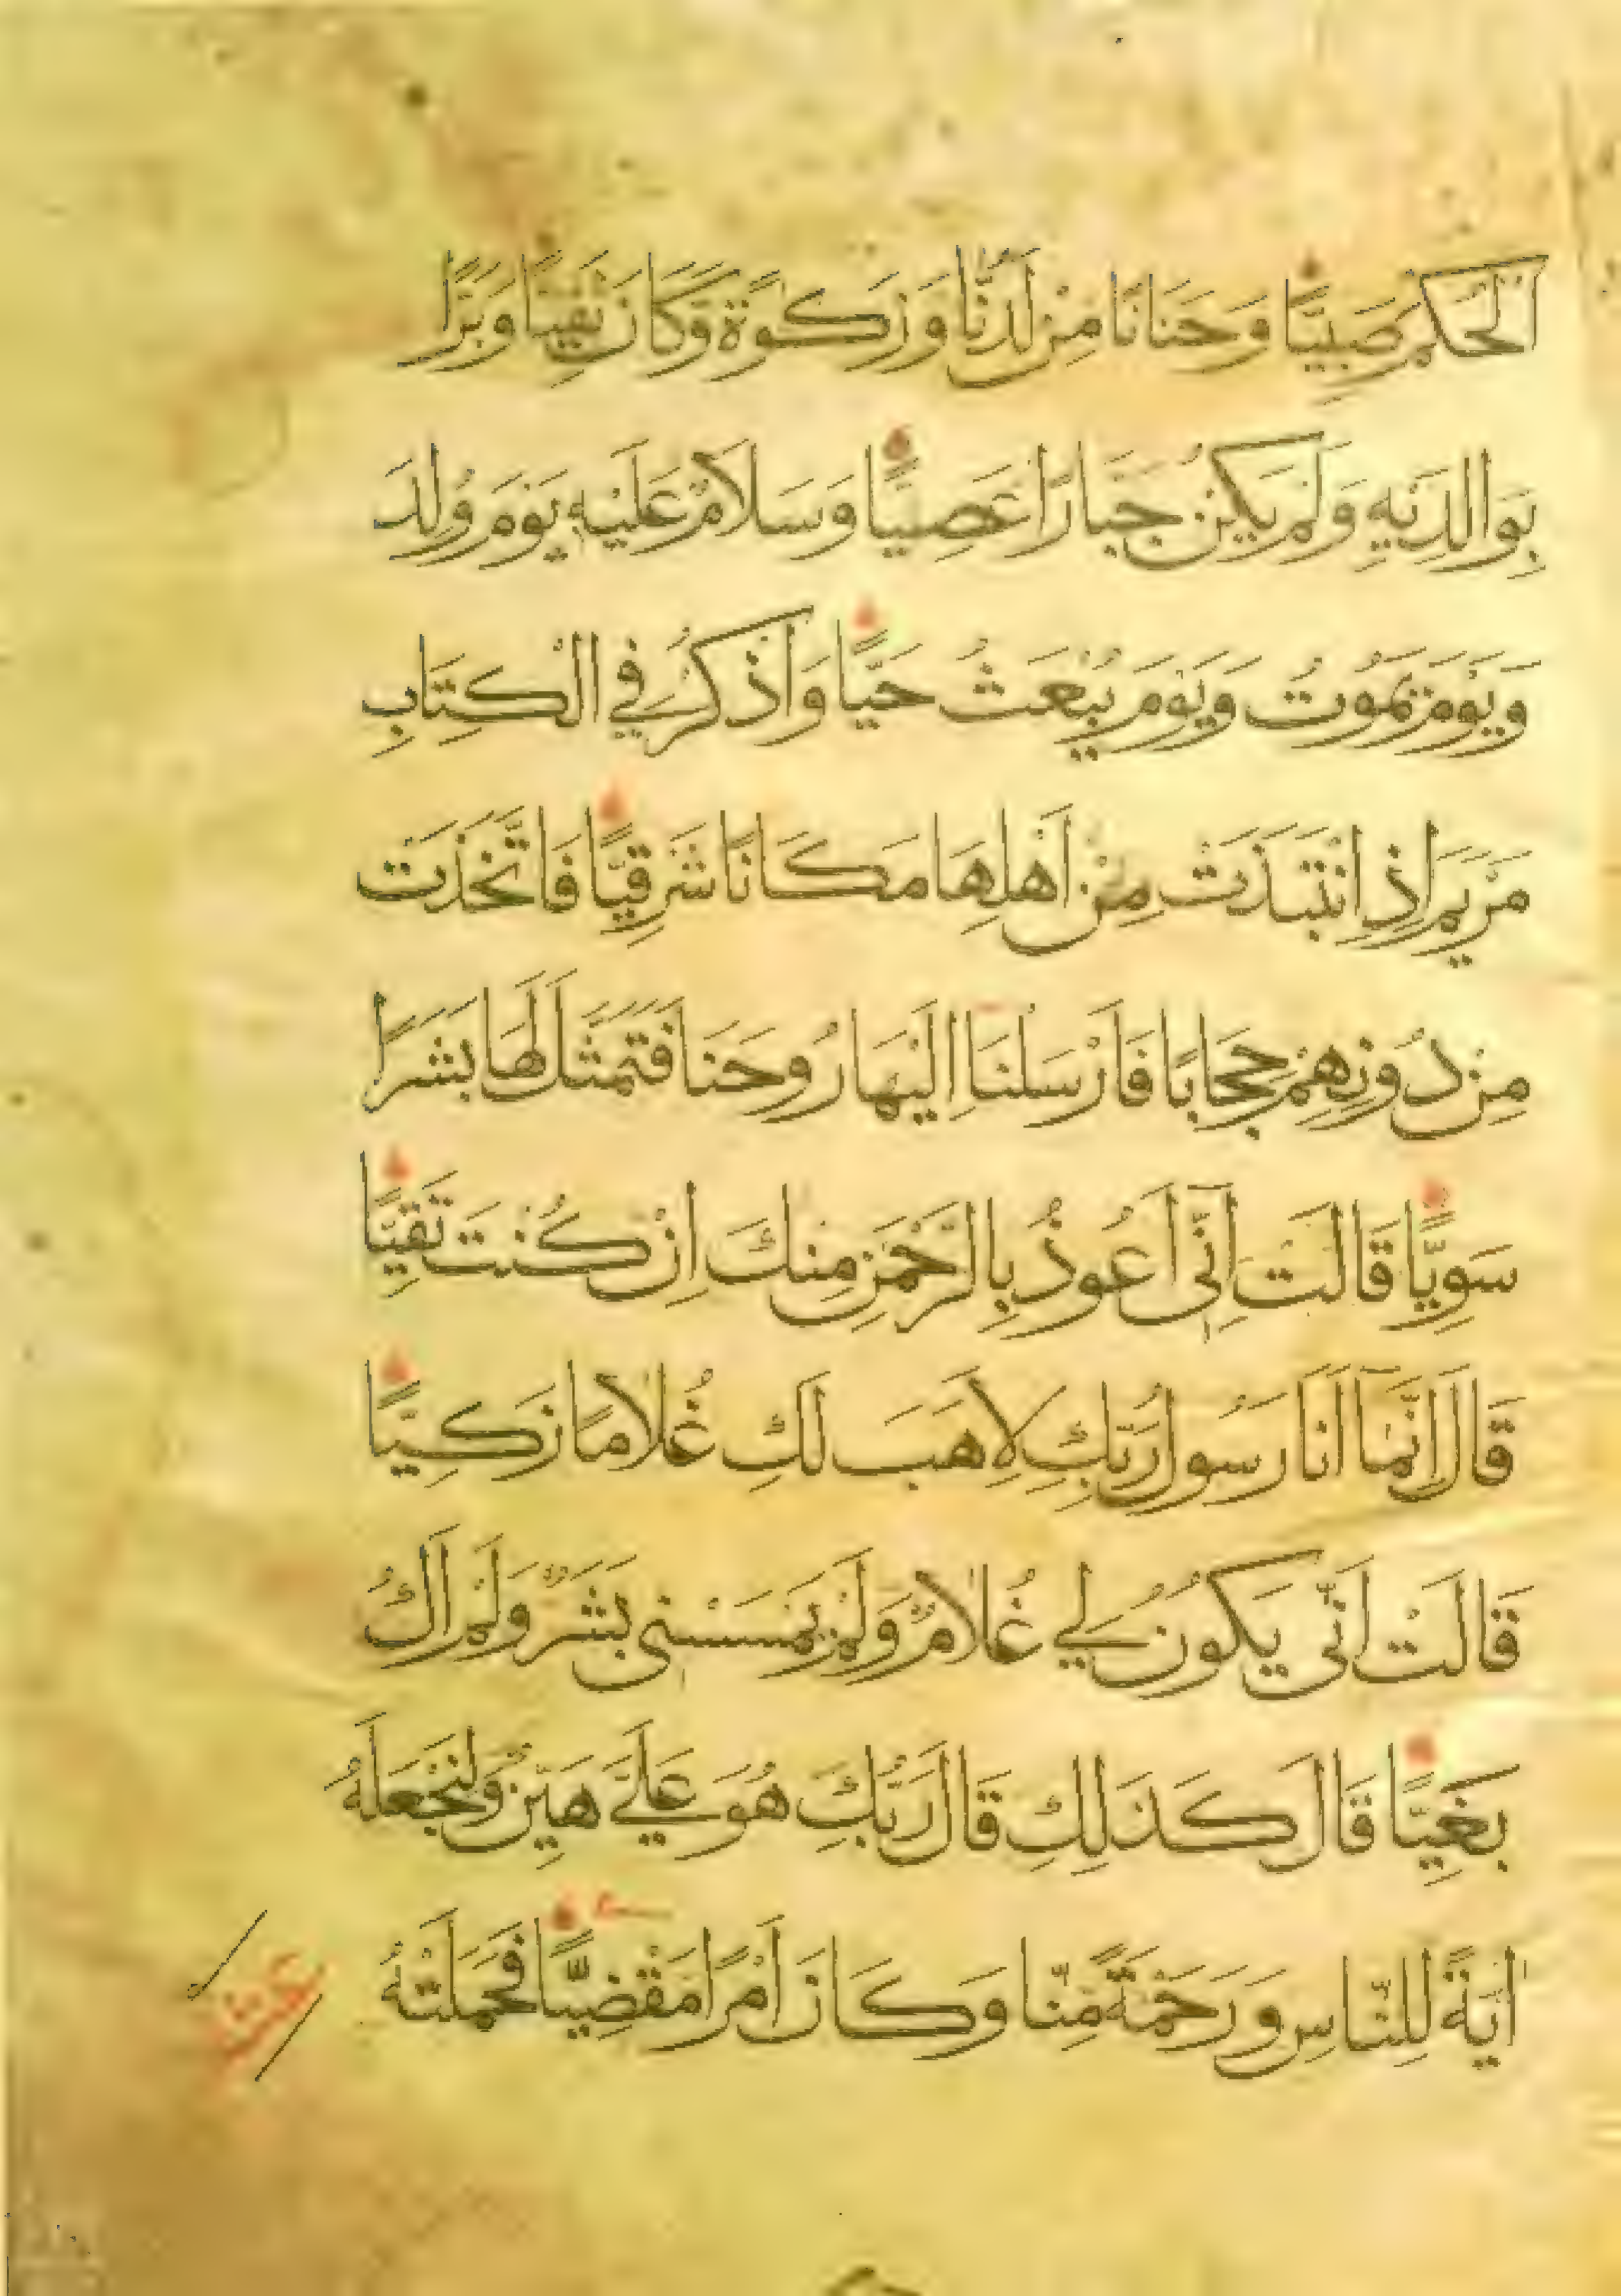 الْحُكْمَ صَبِيًّا وَحَنَانًا مِنْ لَدُنَّا وَزَكٰوةً وَكَانَ تَقِيًّا وَبَرًّا
بِوَالِدَيْهِ وَلَمْ يَكُنْ جَبَّارًا عَصِيًّا وَسَلَامٌ عَلَيْهِ يَوْمَ وُلِدَ
وَيَوْمَ يَمُوتُ وَيَوْمَ يُبْعَثُ حَيًّا وَاذْكُرْ فِي الْكِتَابِ
مَرْيَمَ اِذِ انْتَبَذَتْ مِنْ اَهْلِهَا مَكَانًا شَرْقِيًّا فَاتَّخَذَتْ
مِنْ دُونِهِمْ حِجَابًا فَاَرْسَلْنَا اِلَيْهَا رُوحَنَا فَتَمَثَّلَ لَهَا بَشَرًا
سَوِيًّا قَالَتْ اِنِّي اَعُوذُ بِالرَّحْمَنِ مِنْكَ اِنْ كُنْتَ تَقِيًّا
قَالَ اِنَّمَا اَنَا رَسُولُ رَبِّكِ لِاَهَبَ لَكِ غُلَامًا زَكِيًّا
قَالَتْ اَنّٰى يَكُونُ لِي غُلَامٌ وَلَمْ يَمْسَسْنِي بَشَرٌ وَلَمْ اَكُ
بَغِيًّا قَالَ كَذَلِكِ قَالَ رَبُّكِ هُوَ عَلَيَّ هَيِّنٌ وَلِنَجْعَلَهُ
اٰيَةً لِلنَّاسِ وَرَحْمَةً مِنَّا وَكَانَ اَمْرًا مَقْضِيًّا فَحَمَلَتْهُ